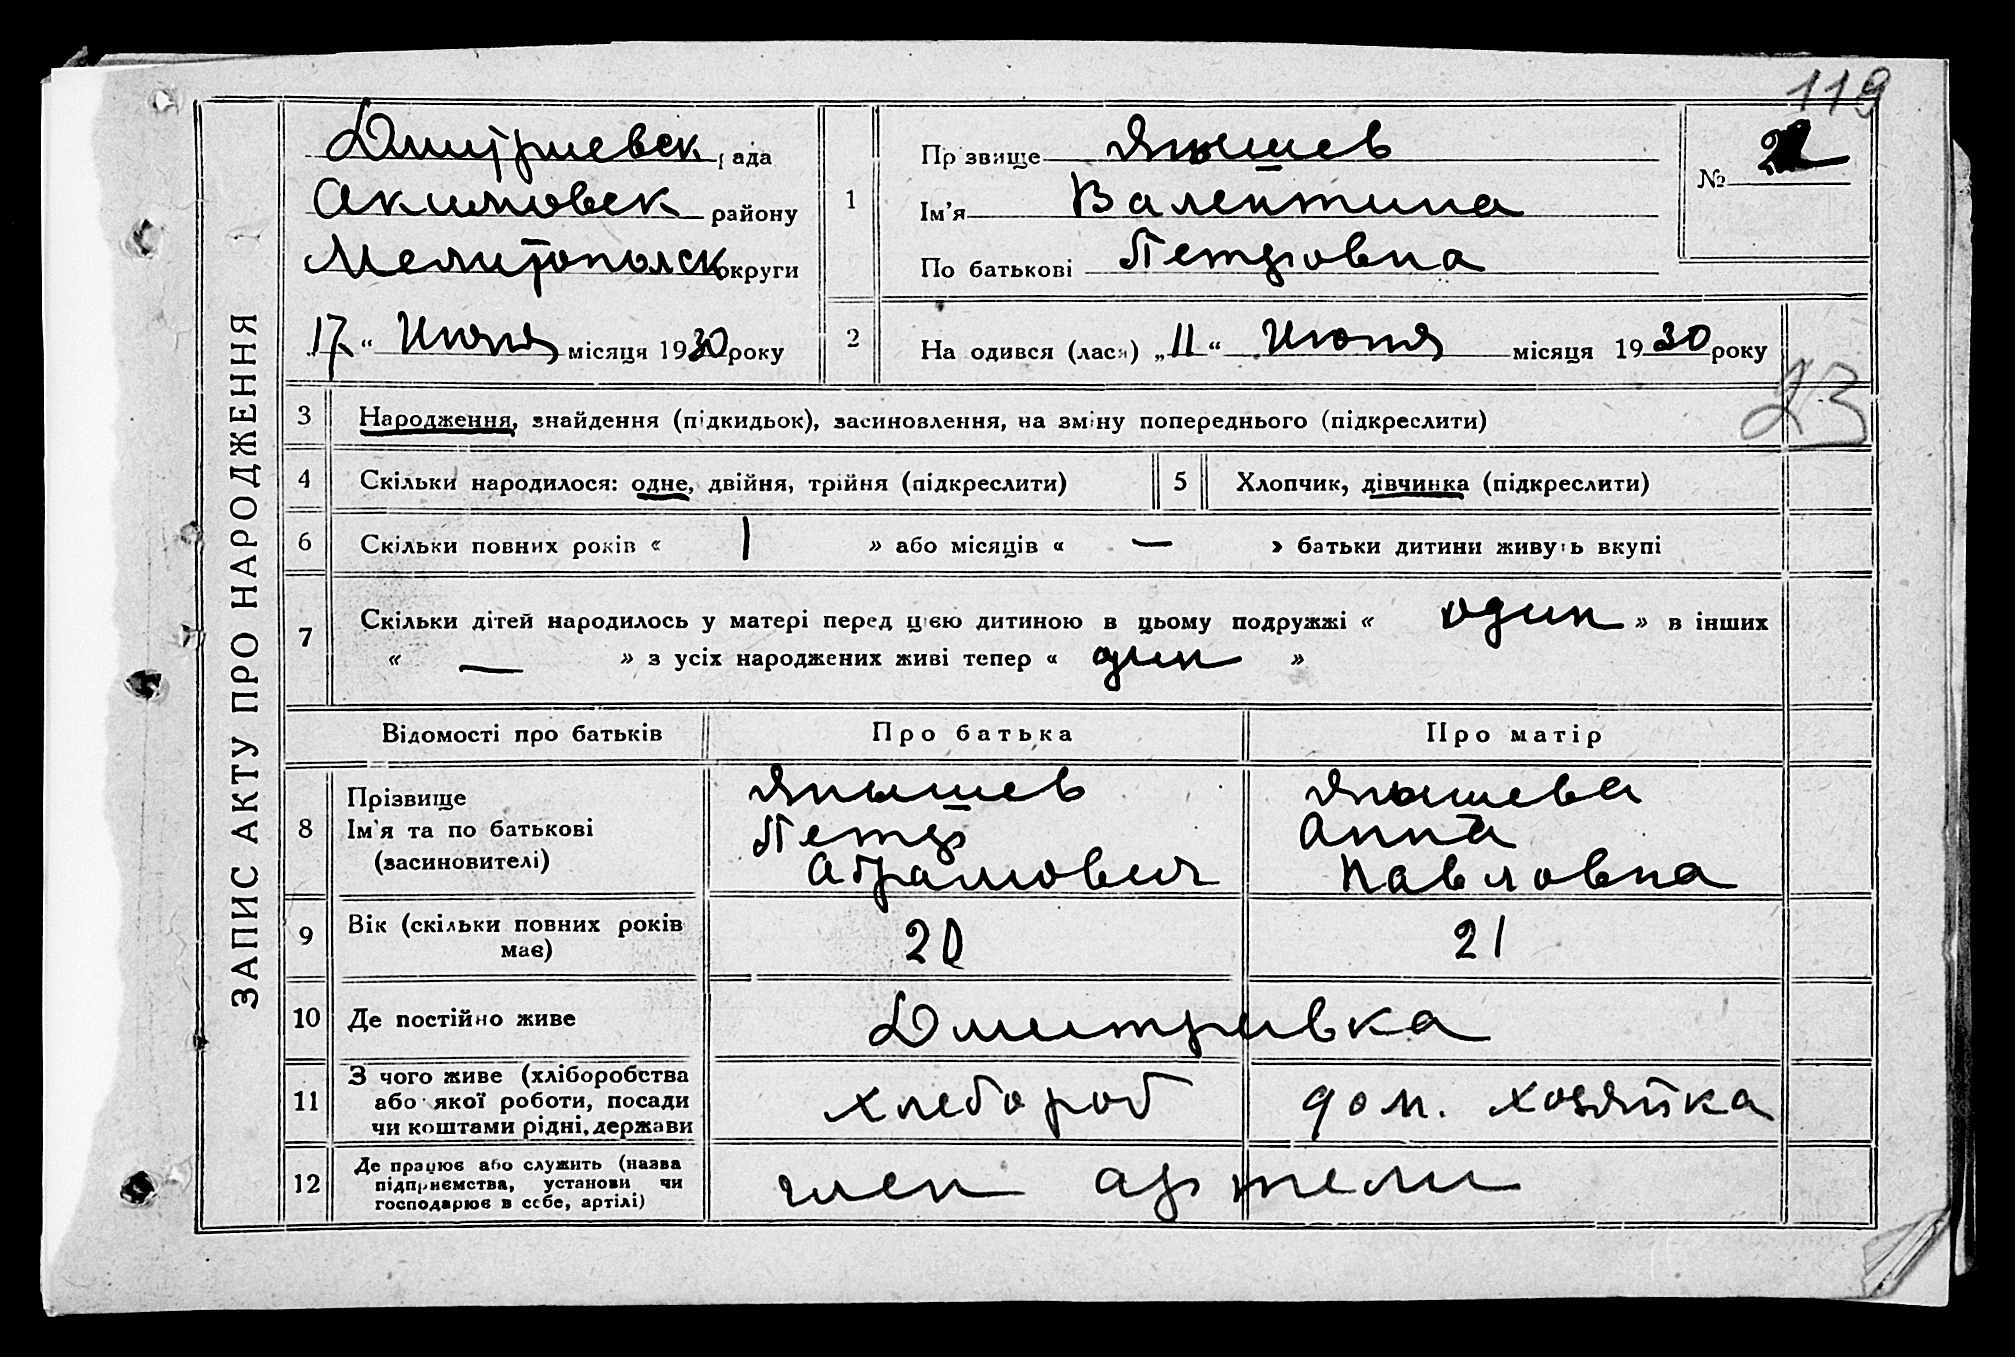 119
ЗАПИС АКТУ ПРО НАРОДЖЕННЯ
Дмитриевск рада
Акимовск району
Мелитопольск округи
17 “ Июня місяця 1930 року
1
Прізвище Янышев
Ім'я Валентина
По батькові Петровна
№
2
На одився (лася) „11“ Июня місяця 1930 року
23
3 Народження, знайдення (підкидьок), засиновлення, на зміну попереднього (підкреслити)
4 Скільки народилося: одне, двійня, трійня (підкреслити) 5 Хлопчик, дівчинка (підкреслити)
6 Скільки повних років « 1 » або місяців « — » батьки дитини живуть вкупі
7 Скільки дітей народилось у матері перед цією дитиною в цьому подружжі « один » в інших
« — » з усіх народжених живі тепер « один »
Відомості про батьків Про батька Про матір
8
Прізвище Янышев Янышева
Ім'я та по батькові Петр Анна
(засиновителі) Абрамович Павловна
9 Вік (скільки повних років має) 20 21
10 Де постійно живе Дмитривка
11
З чого живе (хліборобства
або якої роботи, посади хлебороб дом. хозяйка
чи коштами рідні, держави
12
Де працює або служить (назва
підприємства, установи чи член артели
господарює в себе, артілі)